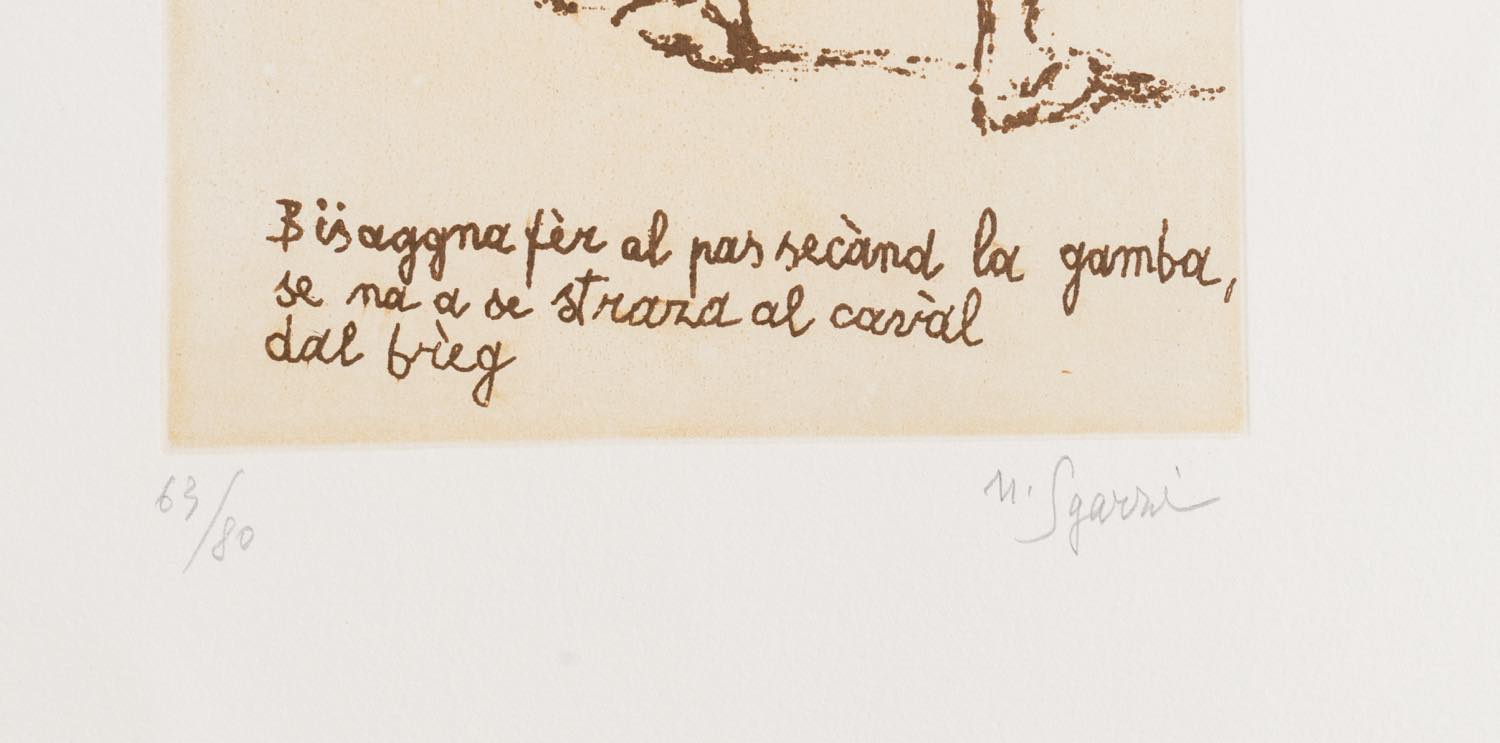 Bïsaggna fèr al pas secànd la gamba,
se na a se straza al cavàl
dal brìeg
63/80
N. Sgarzi